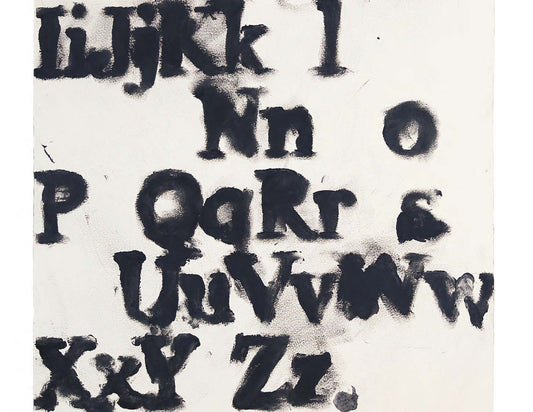 IiJjKk l
Nn o
P QqRr s
UuVvWw
XxY Zz.